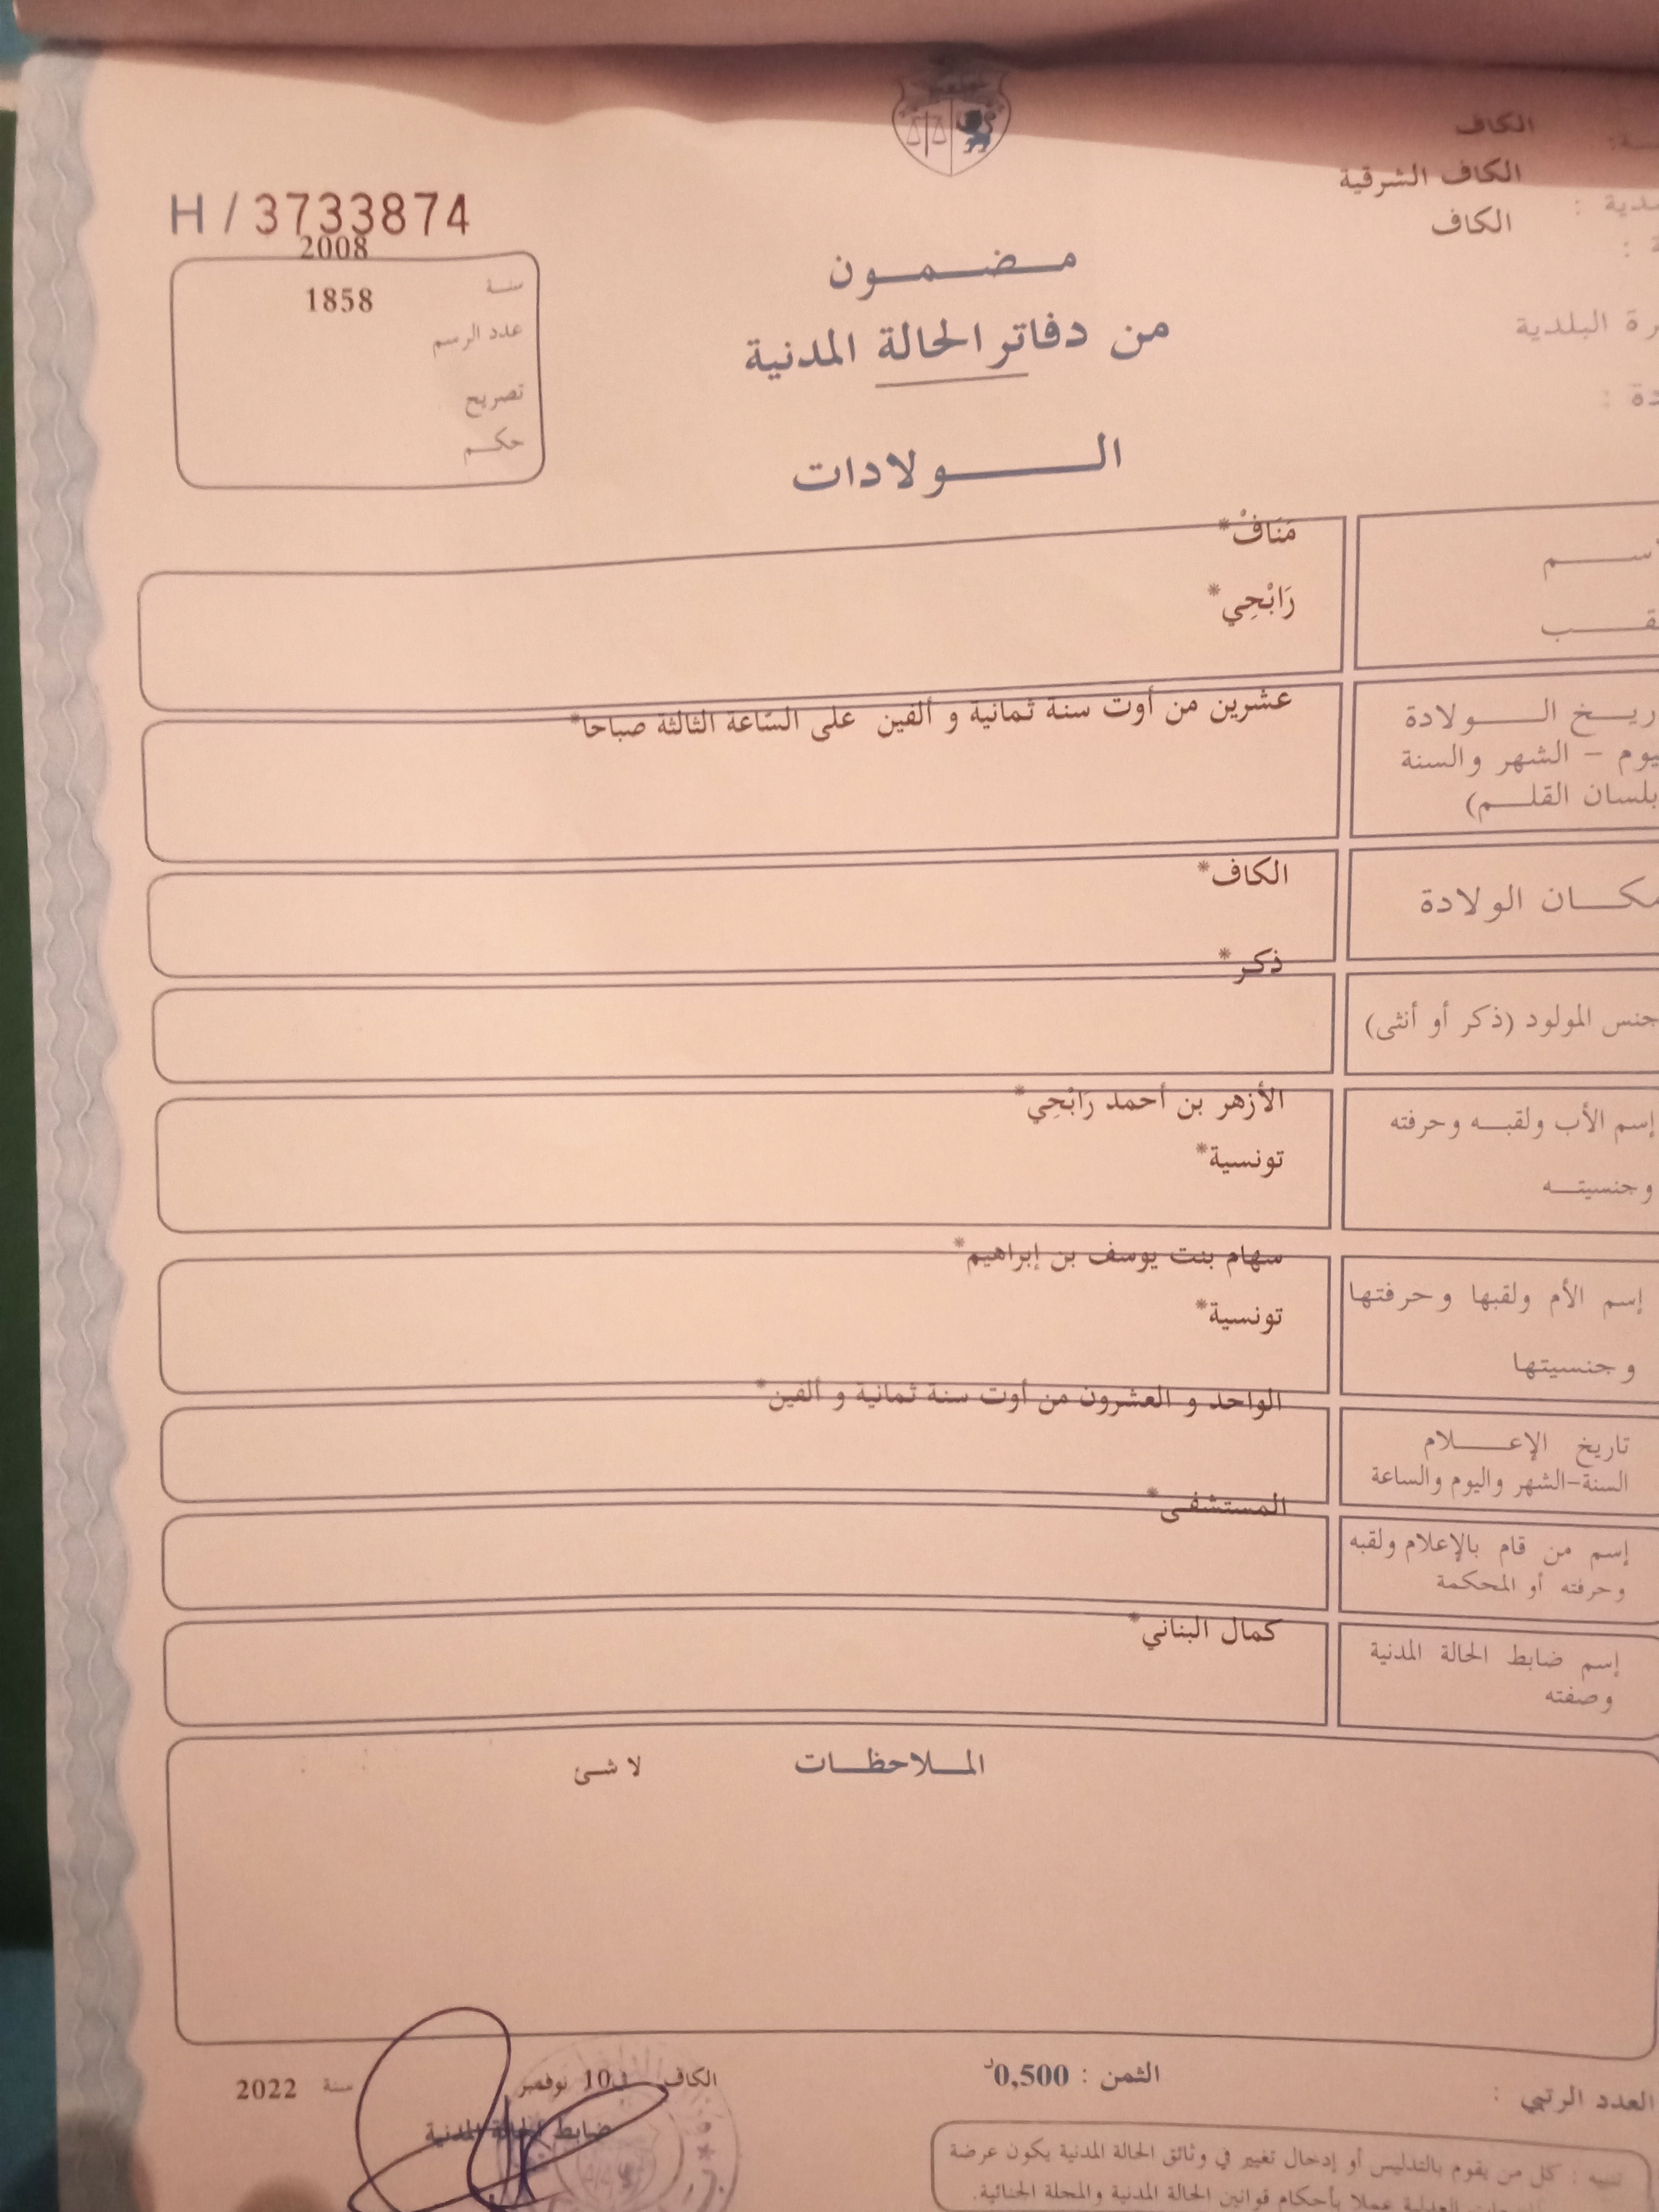 الكاف
الكاف الشرقية
الكاف
H / 3733874
2008
سنة
1858
عدد الرسم
تصريح
حكم
مضمون
من دفاتر الحالة المدنية
الولادات
البلدية
مَنَافْ*
رَابْحِي*
عشرين من أوت سنة ثمانية و ألفين على السّاعة الثالثة صباحا*
الولادة
– الشهر والسنة
بلسان القلم)
الكاف*
مكان الولادة
ذكر*
جنس المولود (ذكر أو أنثى)
الأزهر بن أحمد رَابْحِي*
إسم الأب ولقبه وحرفته
تونسية*
وجنسيته
سهام بنت يوسف بن إبراهيم*
إسم الأم ولقبها وحرفتها
تونسية*
وجنسيتها
الواحد و العشرون من أوت سنة ثمانية و ألفين*
تاريخ الإعلام
السنة-الشهر واليوم والساعة
المستشفى*
إسم من قام بالإعلام ولقبه
وحرفته أو المحكمة
كمال البناني*
إسم ضابط الحالة المدنية
وصفته
الملاحظات
لا شئ
العدد الرتبي :
الثمن : 0,500د
الكاف في 10 نوفمبر سنة 2022
ضابط الحالة المدنية
تنبيه : كل من يقوم بالتدليس أو إدخال تغيير في وثائق الحالة المدنية يكون عرضة
العدلية عملا بأحكام قوانين الحالة المدنية والمجلة الجنائية.